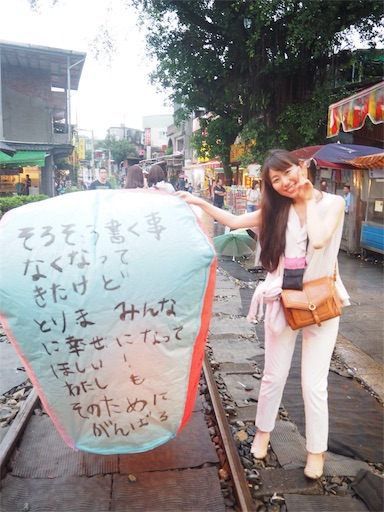 そろそろ書く事
なくなって
きたけど
とりま みんな
に幸せになって
ほしい！
わたし も
そのために
がんばる